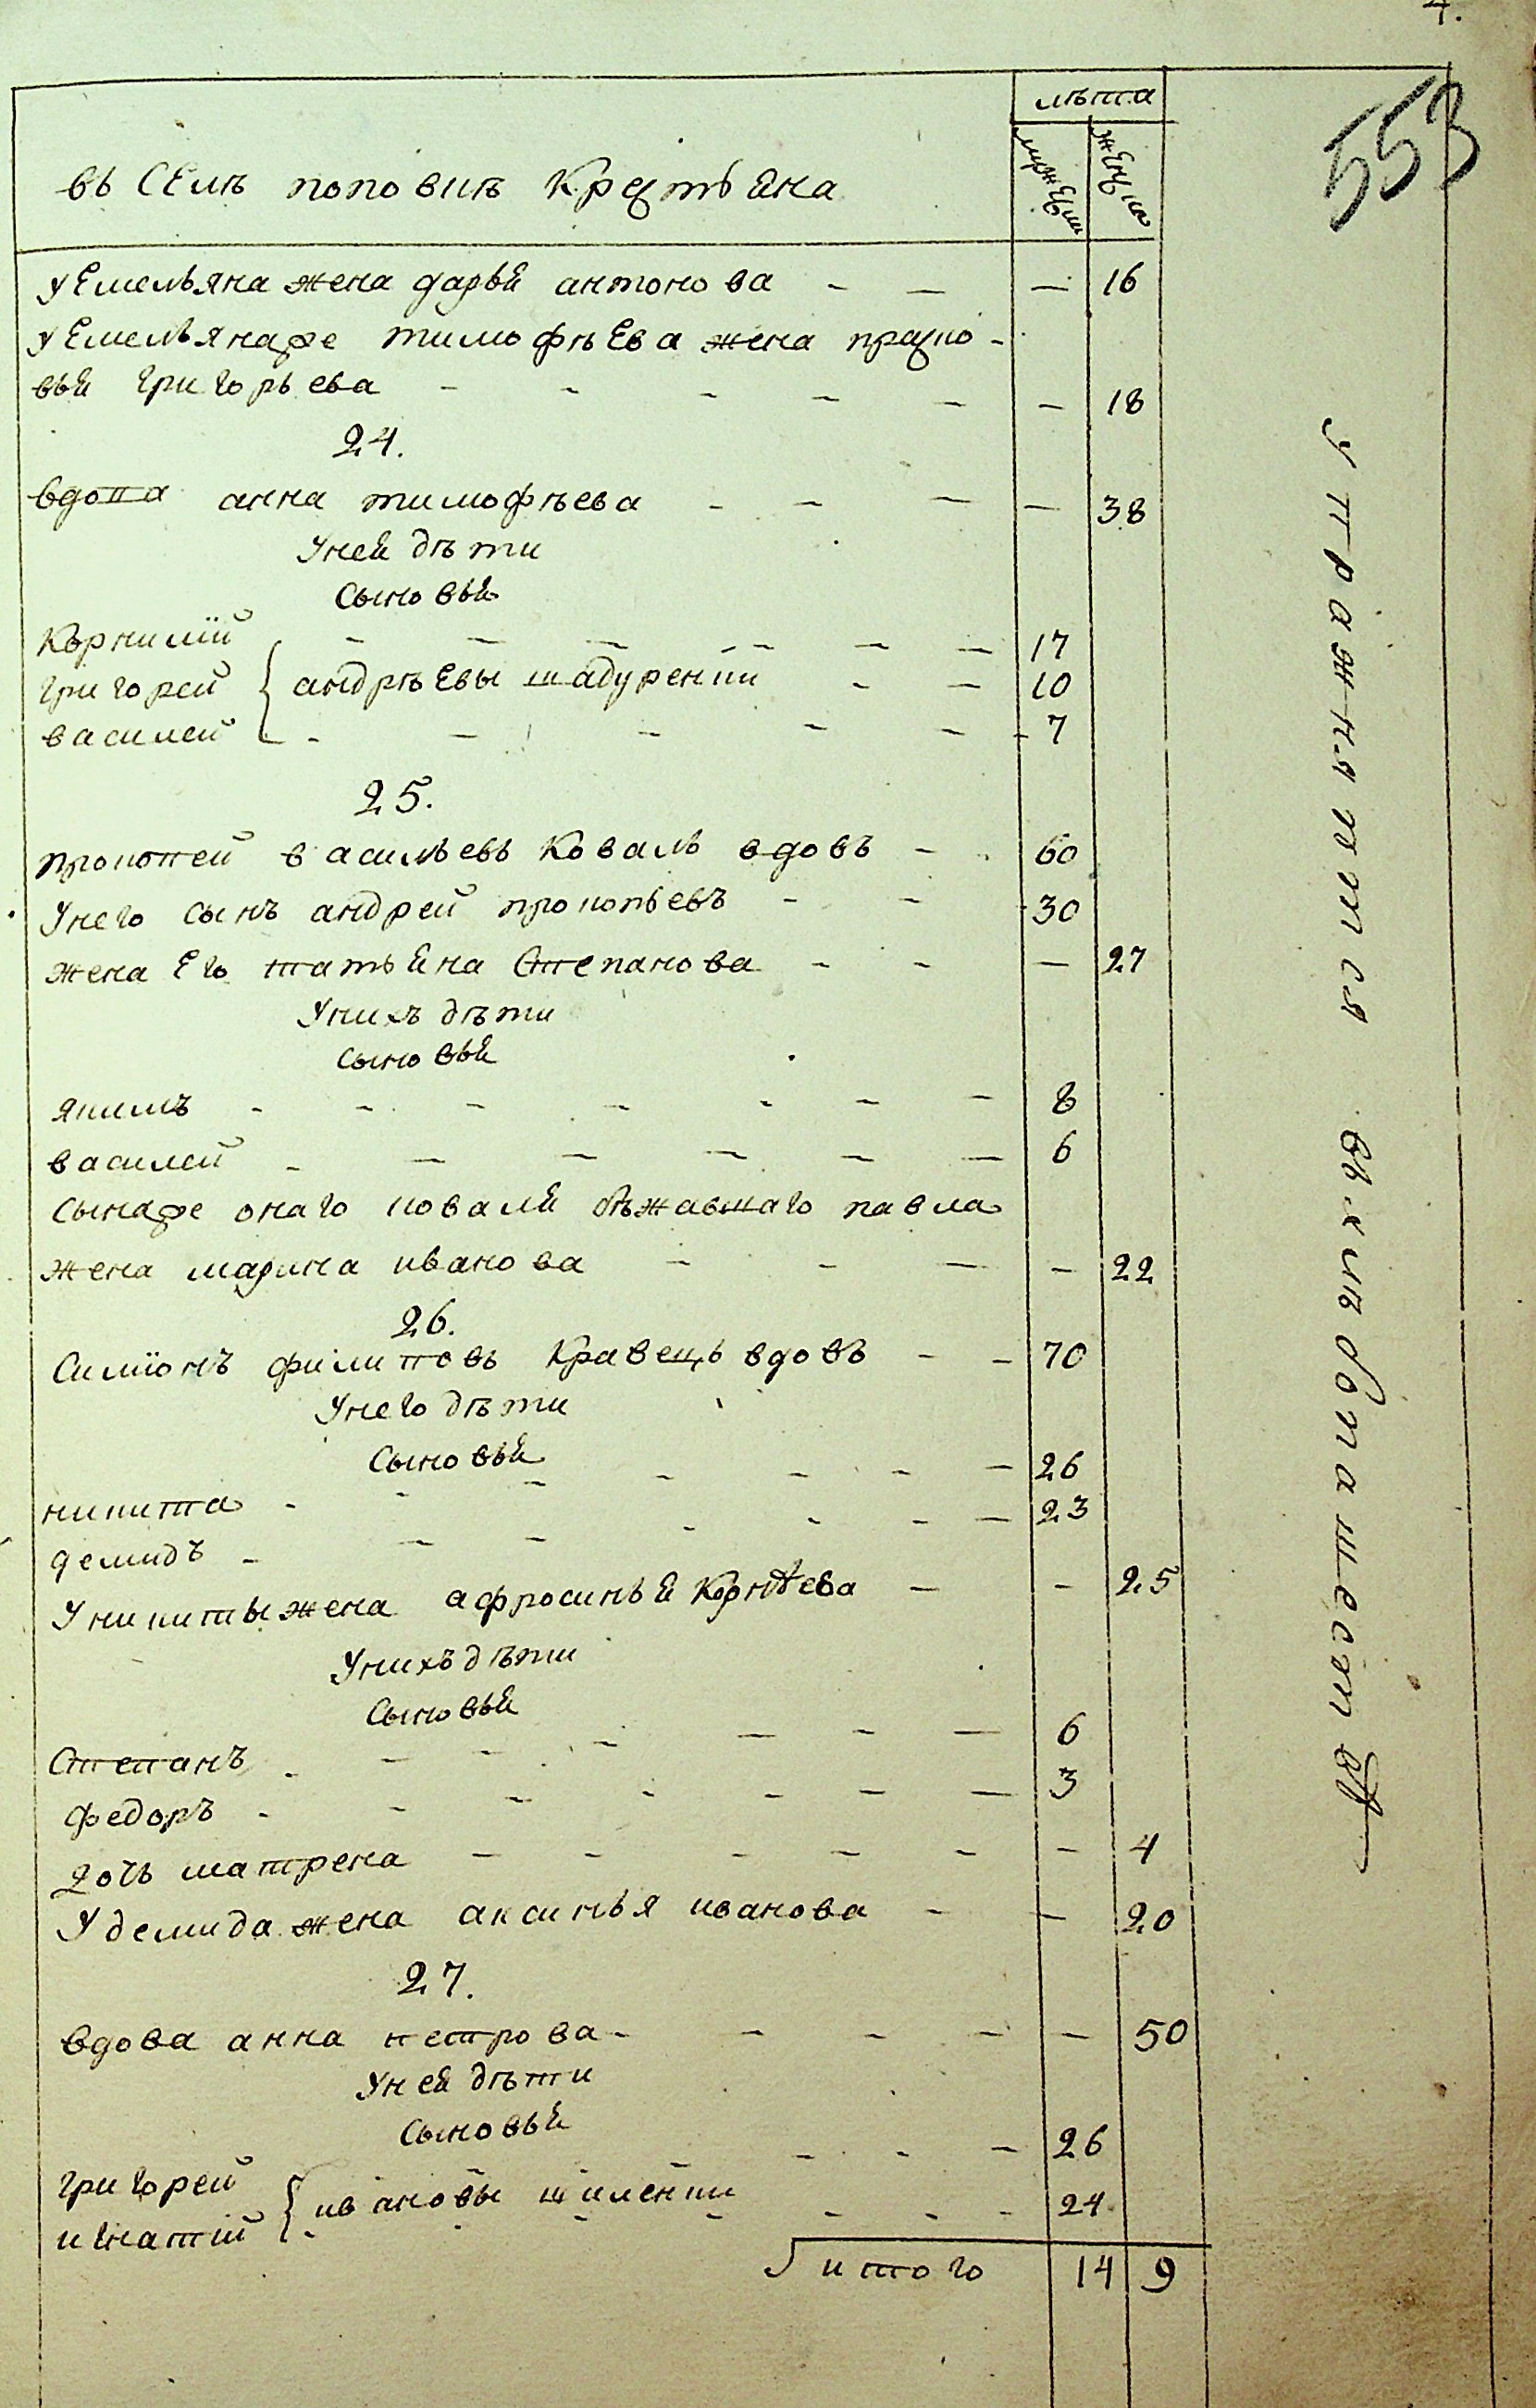 4.
553
лѣта
мужеска
женска
въ селѣ поповкѣ крестьяна
у Емельяна жена дарья антонова — — — 16
у Емельянаже тимофѣева жена праско-
вья григорьева - - - - - - 18
24.
вдова анна тимофѣева - - - - 38
У ней дѣти
Сыновья
Корнилій - - - - - - 17
григорей { андрѣевы шадуренки - - 10
василей - - - - - 7
25.
прокопей васильевъ коваль вдовъ - - 60
У него сынъ андрей прокопьевъ - - 30
жена Его татьяна Степанова - - - 27
У нихъ дѣти
сыновья
якимъ - - - - - - - 8
василей - - - - - - 6
сынаже онаго коваля бѣжавшаго павла
жена марина иванова - - - - 22
26.
Симіонъ филиповъ кравецъ вдовъ - - 70
У него дѣти
Сыновья
никита - - - - - - - 26
демидъ - - - - - - - 23
У никиты жена афросинья Корнѣева - - 25
У нихъ дѣти
Сыновья
Степанъ - - - - - - - 6
федоръ - - - - - - - 3
дочь матрена - - - - - - 4
У демида жена аксинья иванова - - 20
27.
вдова анна петрова - - - - - 50
У ней дѣти
Сыновья
григорей { ивановы шиленки - - - 26
игнатій - - - - - - - 24
итого 14 9
упражняется
въ хлибопашествѣ